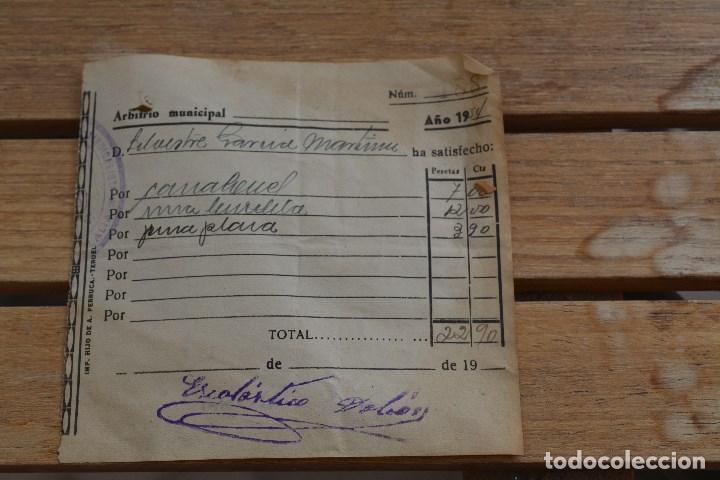 Núm.
Arbitrio municipal Año 1954
D. Silvestre Garcia Martinez ha satisfecho:
Pesetas Cts
Por 7 00
Por una 12 00
Por una plaza 3 90
Por
Por
Por
Por
TOTAL 22 90
de de 19
Escolástico Dolón
IMP. HIJO DE A. PERRUCA.-TERUEL
todocoleccion.net